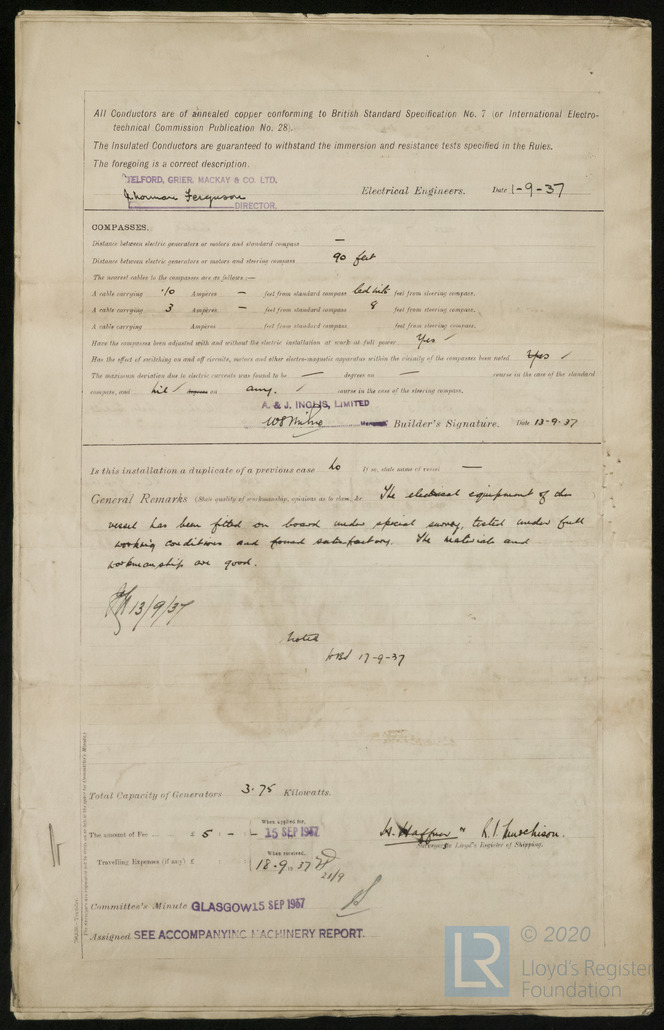 All Conductors are of annealed copper conforming to British Standard Specification No. 7 (or International Electro-
technical Commission Publication No. 28).
The Insulated Conductors are guaranteed to withstand the immersion and resistance tests specified in the Rules.
The foregoing is a correct description.
TELFORD, GRIER, MACKAY & CO. LTD.
Ferguson Electrical Engineers. Date 1-9-37
DIRECTOR.
COMPASSES.
Distance between electric generators or motors and standard compass —
Distance between electric generators or motors and steering compass 90 feet
The nearest cables to the compasses are as follows:—
A cable carrying ·10 Ampères — feet from standard compass led into feet from steering compass.
A cable carrying 3 Ampères — feet from standard compass 8 feet from steering compass.
A cable carrying Ampères feet from standard compass feet from steering compass.
Have the compasses been adjusted with and without the electric installation at work at full power Yes ✓
Has the effect of switching on and off circuits, motors and other electro-magnetic apparatus within the vicinity of the compasses been noted Yes ✓
The maximum deviation due to electric currents was found to be — degrees on — course in the case of the standard
compass, and nil ✓ degrees on any. ✓ course in the case of the steering compass.
A. & J. INGLIS, LIMITED
Builder's Signature. Date 13-9-37
Is this installation a duplicate of a previous case No If so, state name of vessel —
General Remarks (State quality of workmanship, opinions as to class, &c. The electrical equipment of this
vessel has been fitted on board under special survey, tested under full
working conditions and found satisfactory. The materials and
workmanship are good.
13/9/37
Noted
17-9-37
Total Capacity of Generators 3·75 Kilowatts.
The amount of Fee ... £ 5 : - : - When applied for, 15 SEP 1937
H. Haffner R. I. Hutchison.
Surveyors to Lloyd's Register of Shipping.
Travelling Expenses (if any) £ : : When received, 18·9 19 37
21/9
Committee's Minute GLASGOW 15 SEP 1937
Assigned SEE ACCOMPANYING MACHINERY REPORT.
LR © 2020
Lloyd's Register
Foundation